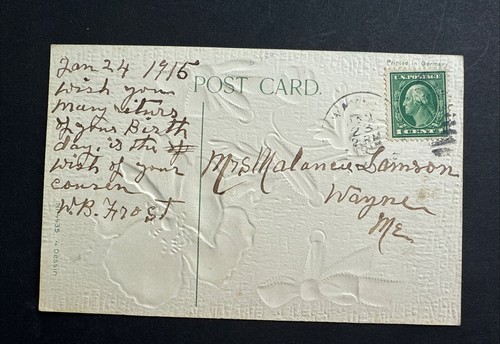 Jan 24 1915
wish you
many returs
of your Birth
day. is the
wish of your
cousen
W.B. Frost
POST CARD.
Printed in Germany
U.S. POSTAGE
1 CENT 1
Mrs Malancie Samson
Wayne
Me
Dessin